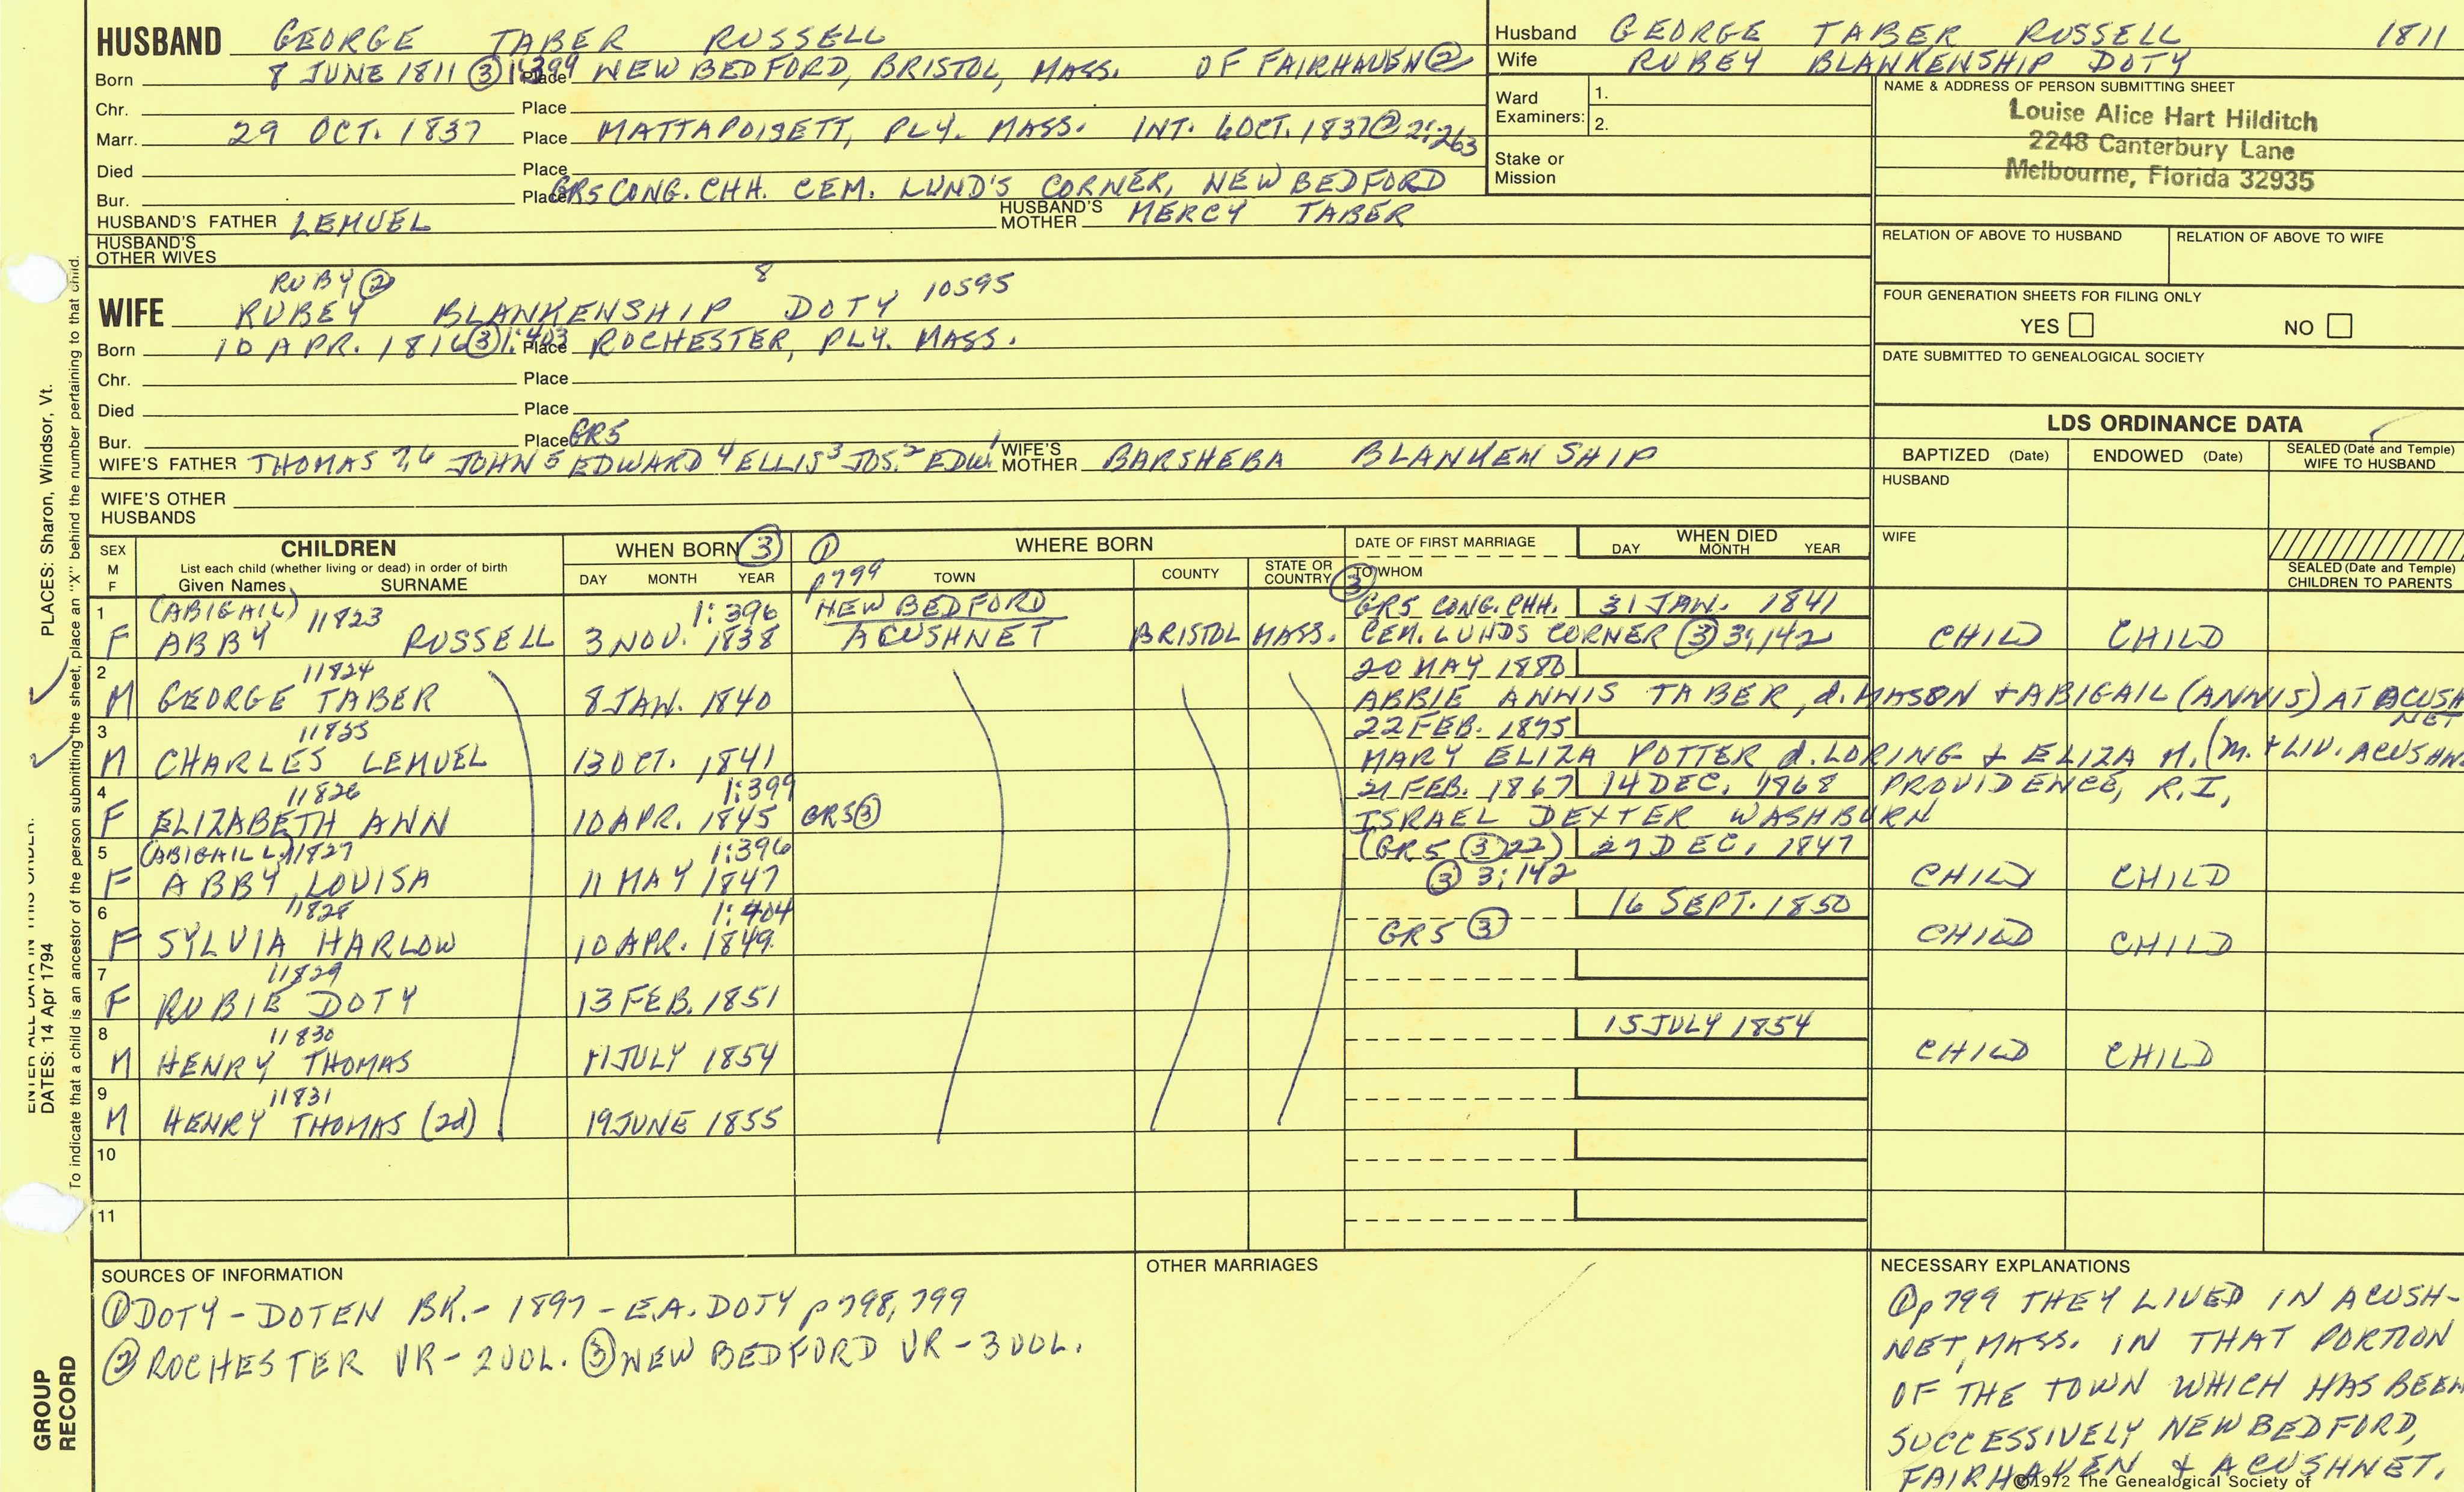 HUSBAND GEORGE TABER RUSSELL
Born 8 JUNE 1811 ③ 1:399 Place NEW BEDFORD, BRISTOL, MASS. OF FAIRHAVEN ②
Chr. Place
Marr. 29 OCT. 1837 Place MATTAPOISETT, PLY. MASS. INT. 6 OCT. 1837 ② 2:263
Died Place
Bur. Place GR5 CONG. CHH. CEM. LUND'S CORNER, NEW BEDFORD
HUSBAND'S FATHER LEMUEL HUSBAND'S MOTHER MERCY TABER
HUSBAND'S OTHER WIVES
RUBY ② 8
WIFE RUBEY BLANKENSHIP DOTY 10595
Born 10 APR. 1816 ③ 1:403 Place ROCHESTER, PLY. MASS.
Chr. Place
Died Place
Bur. Place GR5
WIFE'S FATHER THOMAS 7,6 JOHN 5 EDWARD 4 ELLIS 3 JOS. 2 EDW. 1 WIFE'S MOTHER BARSHEBA BLANKENSHIP
WIFE'S OTHER HUSBANDS
Husband GEORGE TABER RUSSELL 1811
Wife RUBEY BLANKENSHIP DOTY
Ward Examiners: 1.
2.
Stake or Mission
NAME & ADDRESS OF PERSON SUBMITTING SHEET
Louise Alice Hart Hilditch
2248 Canterbury Lane
Melbourne, Florida 32935
RELATION OF ABOVE TO HUSBAND RELATION OF ABOVE TO WIFE
FOUR GENERATION SHEETS FOR FILING ONLY
YES NO
DATE SUBMITTED TO GENEALOGICAL SOCIETY
LDS ORDINANCE DATA
BAPTIZED (Date) ENDOWED (Date) SEALED (Date and Temple) WIFE TO HUSBAND
HUSBAND
WIFE
SEALED (Date and Temple) CHILDREN TO PARENTS
SEX M F
CHILDREN
List each child (whether living or dead) in order of birth
Given Names SURNAME
WHEN BORN ③
DAY MONTH YEAR
① p799 WHERE BORN
TOWN COUNTY STATE OR COUNTRY
DATE OF FIRST MARRIAGE
③ TO WHOM
WHEN DIED
DAY MONTH YEAR
1 (ABIGAIL) 11823 1:396 NEW BEDFORD GR5 CONG. CHH. 31 JAN. 1841
F ABBY RUSSELL 3 NOV. 1838 ACUSHNET BRISTOL MASS. CEM. LUNDS CORNER ③ 3:142 CHILD CHILD
2 11824 20 MAY 1880
M GEORGE TABER 8 JAN. 1840 ABBIE ANNIS TABER, d. MASON + ABIGAIL (ANNIS) AT ACUSHNET
3 11825 22 FEB. 1875
M CHARLES LEMUEL 13 OCT. 1841 MARY ELIZA POTTER d. LORING + ELIZA M. (M. + LIV. ACUSHN
4 11826 1:399 21 FEB. 1867 14 DEC. 1968 PROVIDENCE, R.I.,
F ELIZABETH ANN 10 APR. 1845 GR5 ③ ISRAEL DEXTER WASHBURN
5 (ABIGAIL L.) 11827 1:396 (GR5 ③ 22) 27 DEC. 1847
F ABBY LOUISA 11 MAY 1847 ③ 3:142 CHILD CHILD
6 11828 1:404 16 SEPT. 1850
F SYLVIA HARLOW 10 APR. 1849 GR5 ③ CHILD CHILD
7 11829
F RUBIE DOTY 13 FEB. 1851
8 11830 15 JULY 1854
M HENRY THOMAS 11 JULY 1854 CHILD CHILD
9 11831
M HENRY THOMAS (2d) 19 JUNE 1855
10
11
SOURCES OF INFORMATION
① DOTY-DOTEN BK.- 1897 - E.A. DOTY p798, 799
② ROCHESTER VR - 2 VOL. ③ NEW BEDFORD VR - 3 VOL.
OTHER MARRIAGES
NECESSARY EXPLANATIONS
① p799 THEY LIVED IN ACUSH-
NET, MASS. IN THAT PORTION
OF THE TOWN WHICH HAS BEEN
SUCCESSIVELY NEW BEDFORD,
FAIRHAVEN & ACUSHNET.
©1972 The Genealogical Society of
PLACES: Sharon, Windsor, Vt.
DATES: 14 Apr 1794
To indicate that a child is an ancestor of the person submitting the sheet, place an "X" behind the number pertaining to that child.
GROUP
RECORD